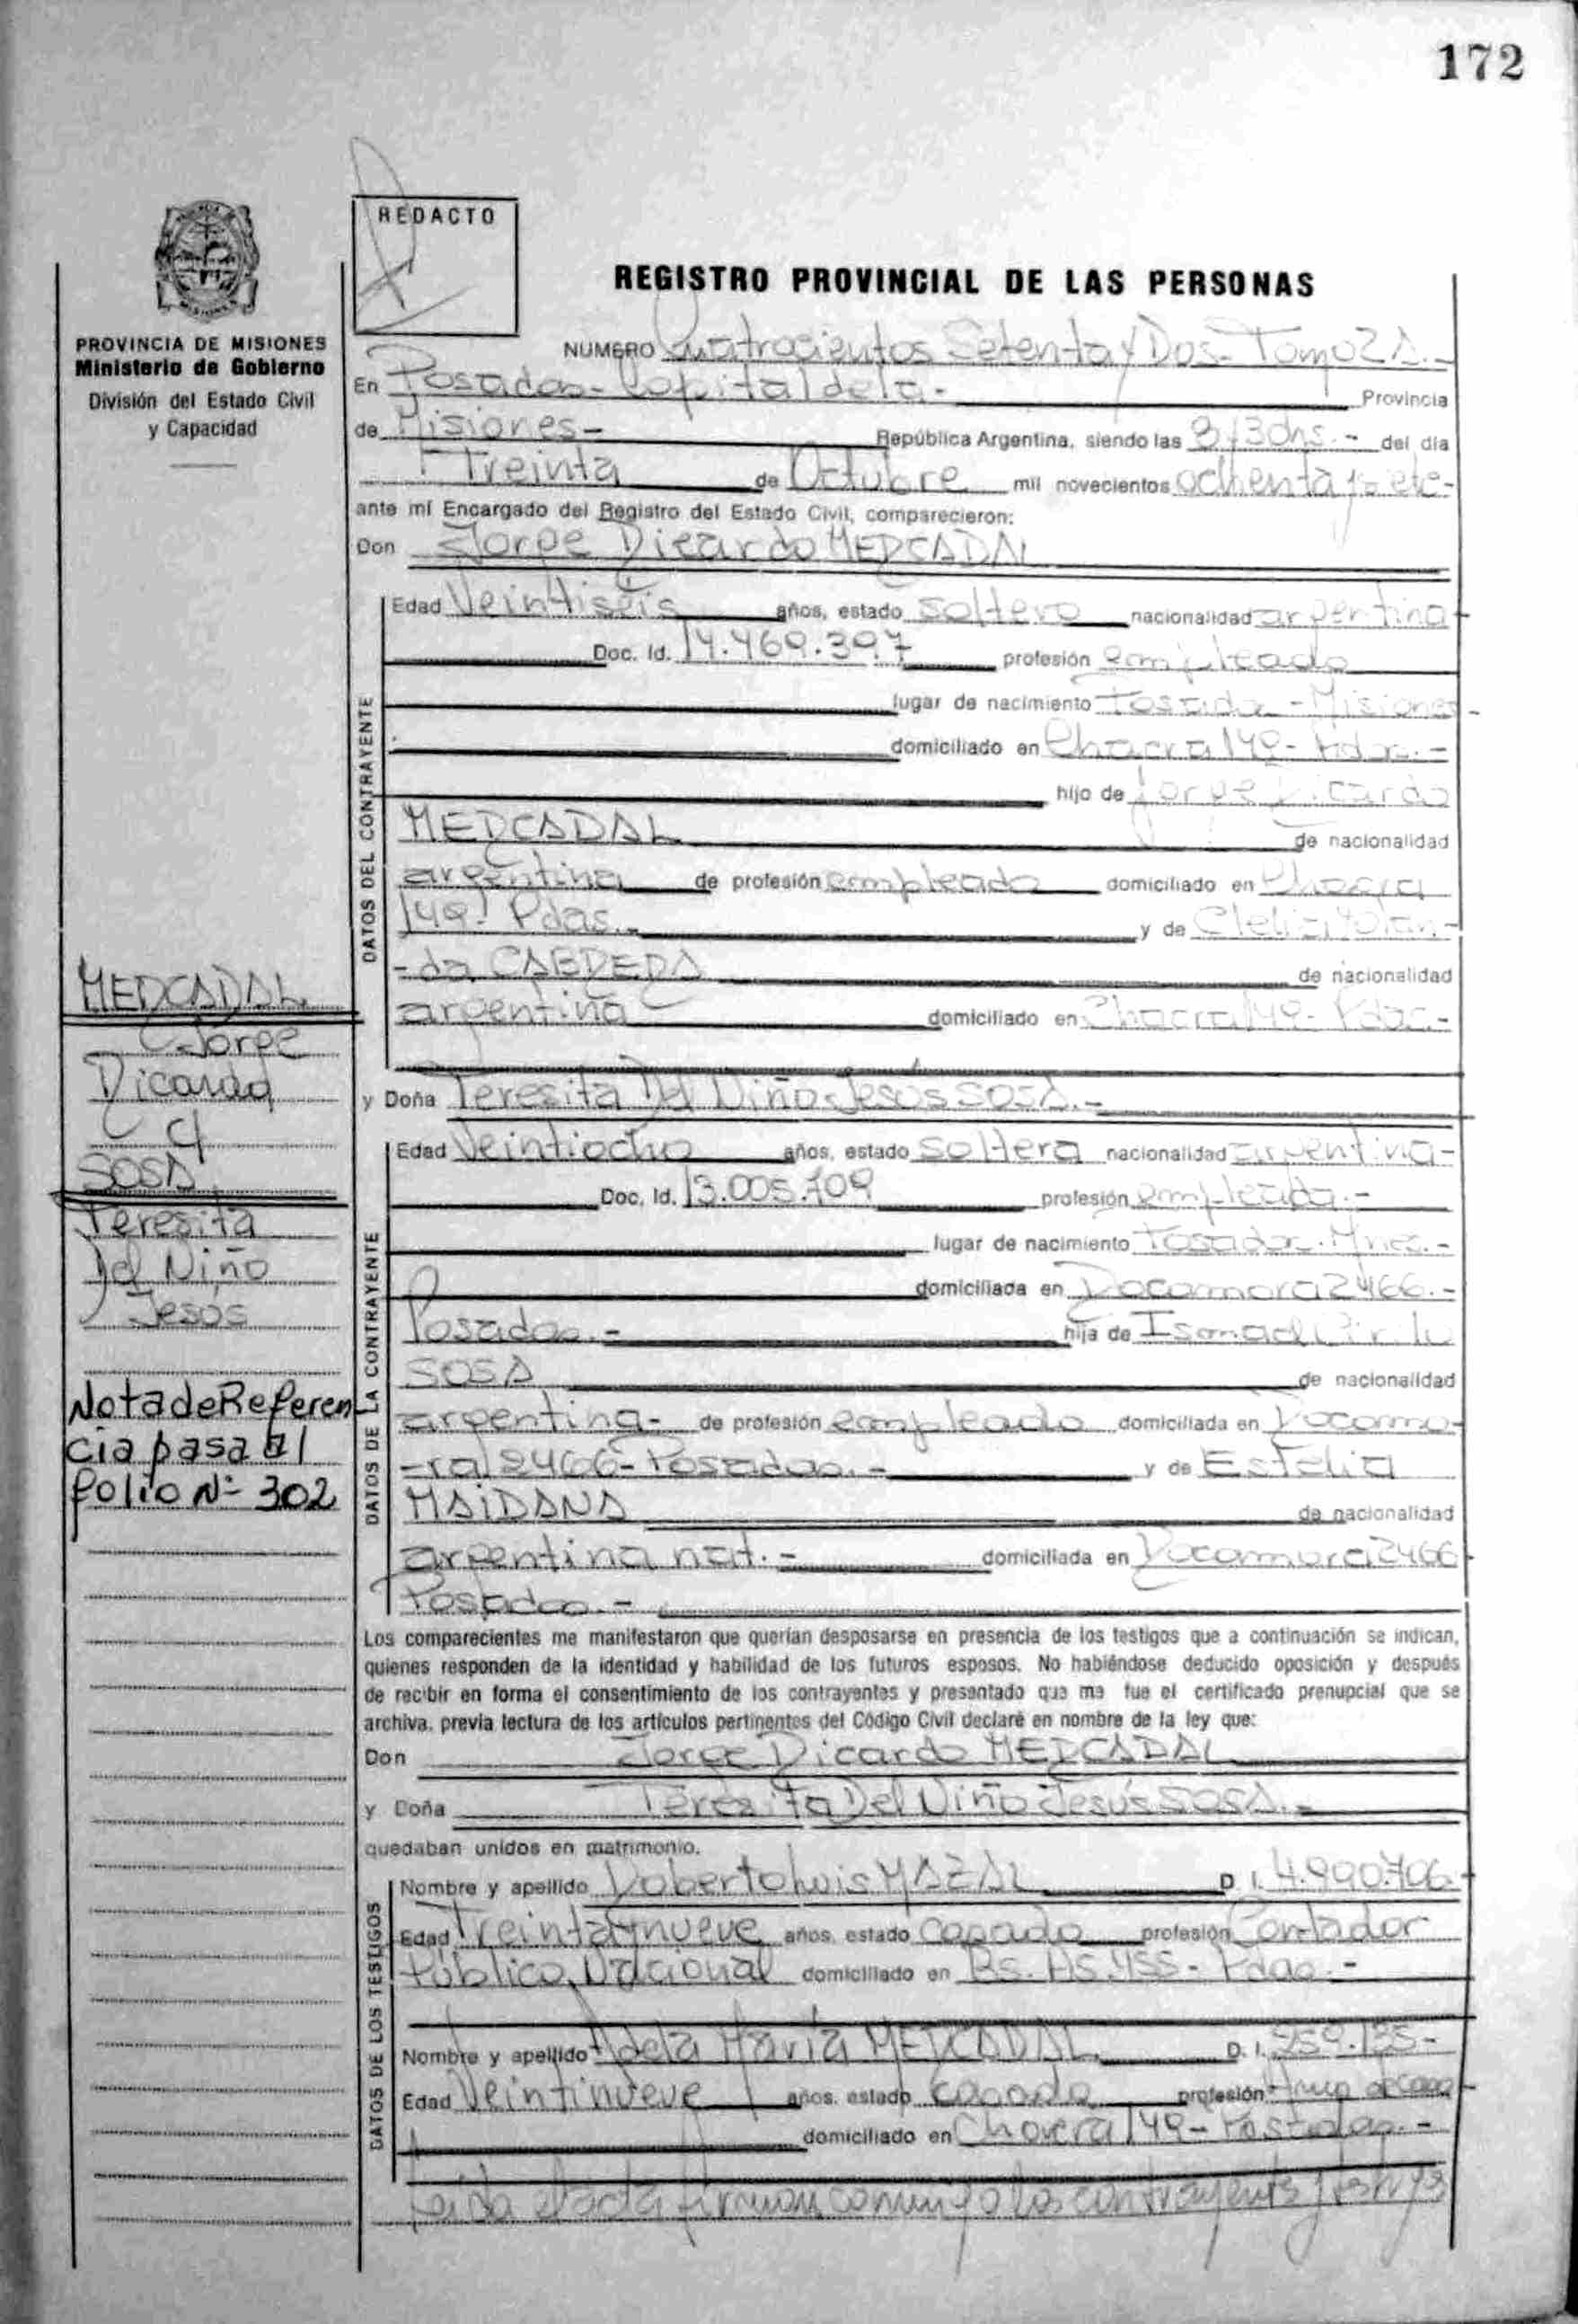 172
REDACTO
REGISTRO PROVINCIAL DE LAS PERSONAS
PROVINCIA DE MISIONES
Ministerio de Gobierno
División del Estado Civil
y Capacidad
NUMERO Cuatrocientos Setenta y Dos- Tomo 2
En Posadas- Capital de la- Provincia
de Misiones- República Argentina, siendo las del día
Treinta de Octubre mil novecientos ochenta y siete-
ante mí Encargado del Registro del Estado Civil, comparecieron:
Don Jorge Ricardo MERCADAL
Edad Veintiseis años, estado soltero nacionalidad argentina
Doc. Id. 14.469.397 profesión empleado
lugar de nacimiento Posadas - Misiones-
domiciliado en Chacra 149- Pdas.-
hijo de Jorge Ricardo
MERCADAL de nacionalidad
argentina de profesión empleado domiciliado en Chacra
149- Pdas.- y de Clelia Yolan-
-da CABRERA de nacionalidad
argentina domiciliado en Chacra 149- Pdas.-
y Doña Teresita Del Niño Jesús SOSA.-
Edad Veintiocho años, estado soltera nacionalidad argentina-
Doc. Id. 13.005.709 profesión empleada.-
lugar de nacimiento Posadas- Mnes.-
domiciliada en Rocamora 2466.-
Posadas.- hija de Ismael
SOSA de nacionalidad
argentina- de profesión empleado domiciliada en Rocamo-
-ra 2466- Posadas.- y de Estelia
MAIDANA de nacionalidad
argentina nat.- domiciliada en Rocamora 2466
Posadas.-
Los comparecientes me manifestaron que querían desposarse en presencia de los testigos que a continuación se indican,
quienes responden de la identidad y habilidad de los futuros esposos. No habiéndose deducido oposición y después
de recibir en forma el consentimiento de los contrayentes y presentado que me fue el certificado prenupcial que se
archiva, previa lectura de los artículos pertinentes del Código Civil declaré en nombre de la ley que:
Don Jorge Ricardo MERCADAL
y Doña Teresita Del Niño Jesús SOSA.-
quedaban unidos en matrimonio.
Nombre y apellido Roberto Luis MAZAL D. I. 4.990.706-
Edad Treinta y nueve años, estado casado profesión Contador
Público Nacional domiciliado en Bs. As. 455- Pdas.-
Nombre y apellido Adela María MERCADAL D. I.
Edad Veintinueve años, estado casada profesión Ama de casa
domiciliado en Chacra 149- Posadas.-
Leida el acta firman conmigo los contrayentes y testigos
DATOS DEL CONTRAYENTE
DATOS DE LA CONTRAYENTE
DATOS DE LOS TESTIGOS
MERCADAL
Jorge
Ricardo
C/
SOSA
Teresita
Del Niño
Jesús
Nota de Referen
cia pasa al
folio Nº 302